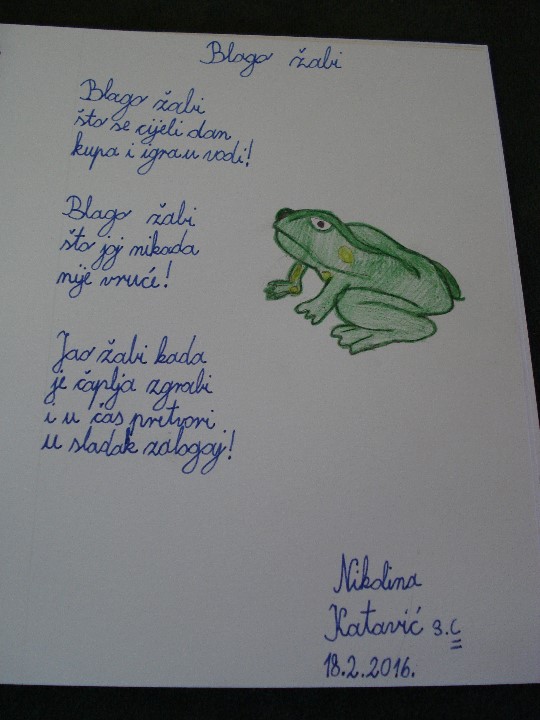 Blago žabi
Blago žabi
što se cijeli dan
kupa i igra u vodi!
Blago žabi
što joj nikada
nije vruće!
Jao žabi kada
je čaplja zgrabi
i u čas pretvori
u sladak zalogaj!
Nikolina
Katavić 3.C
18.2.2016.